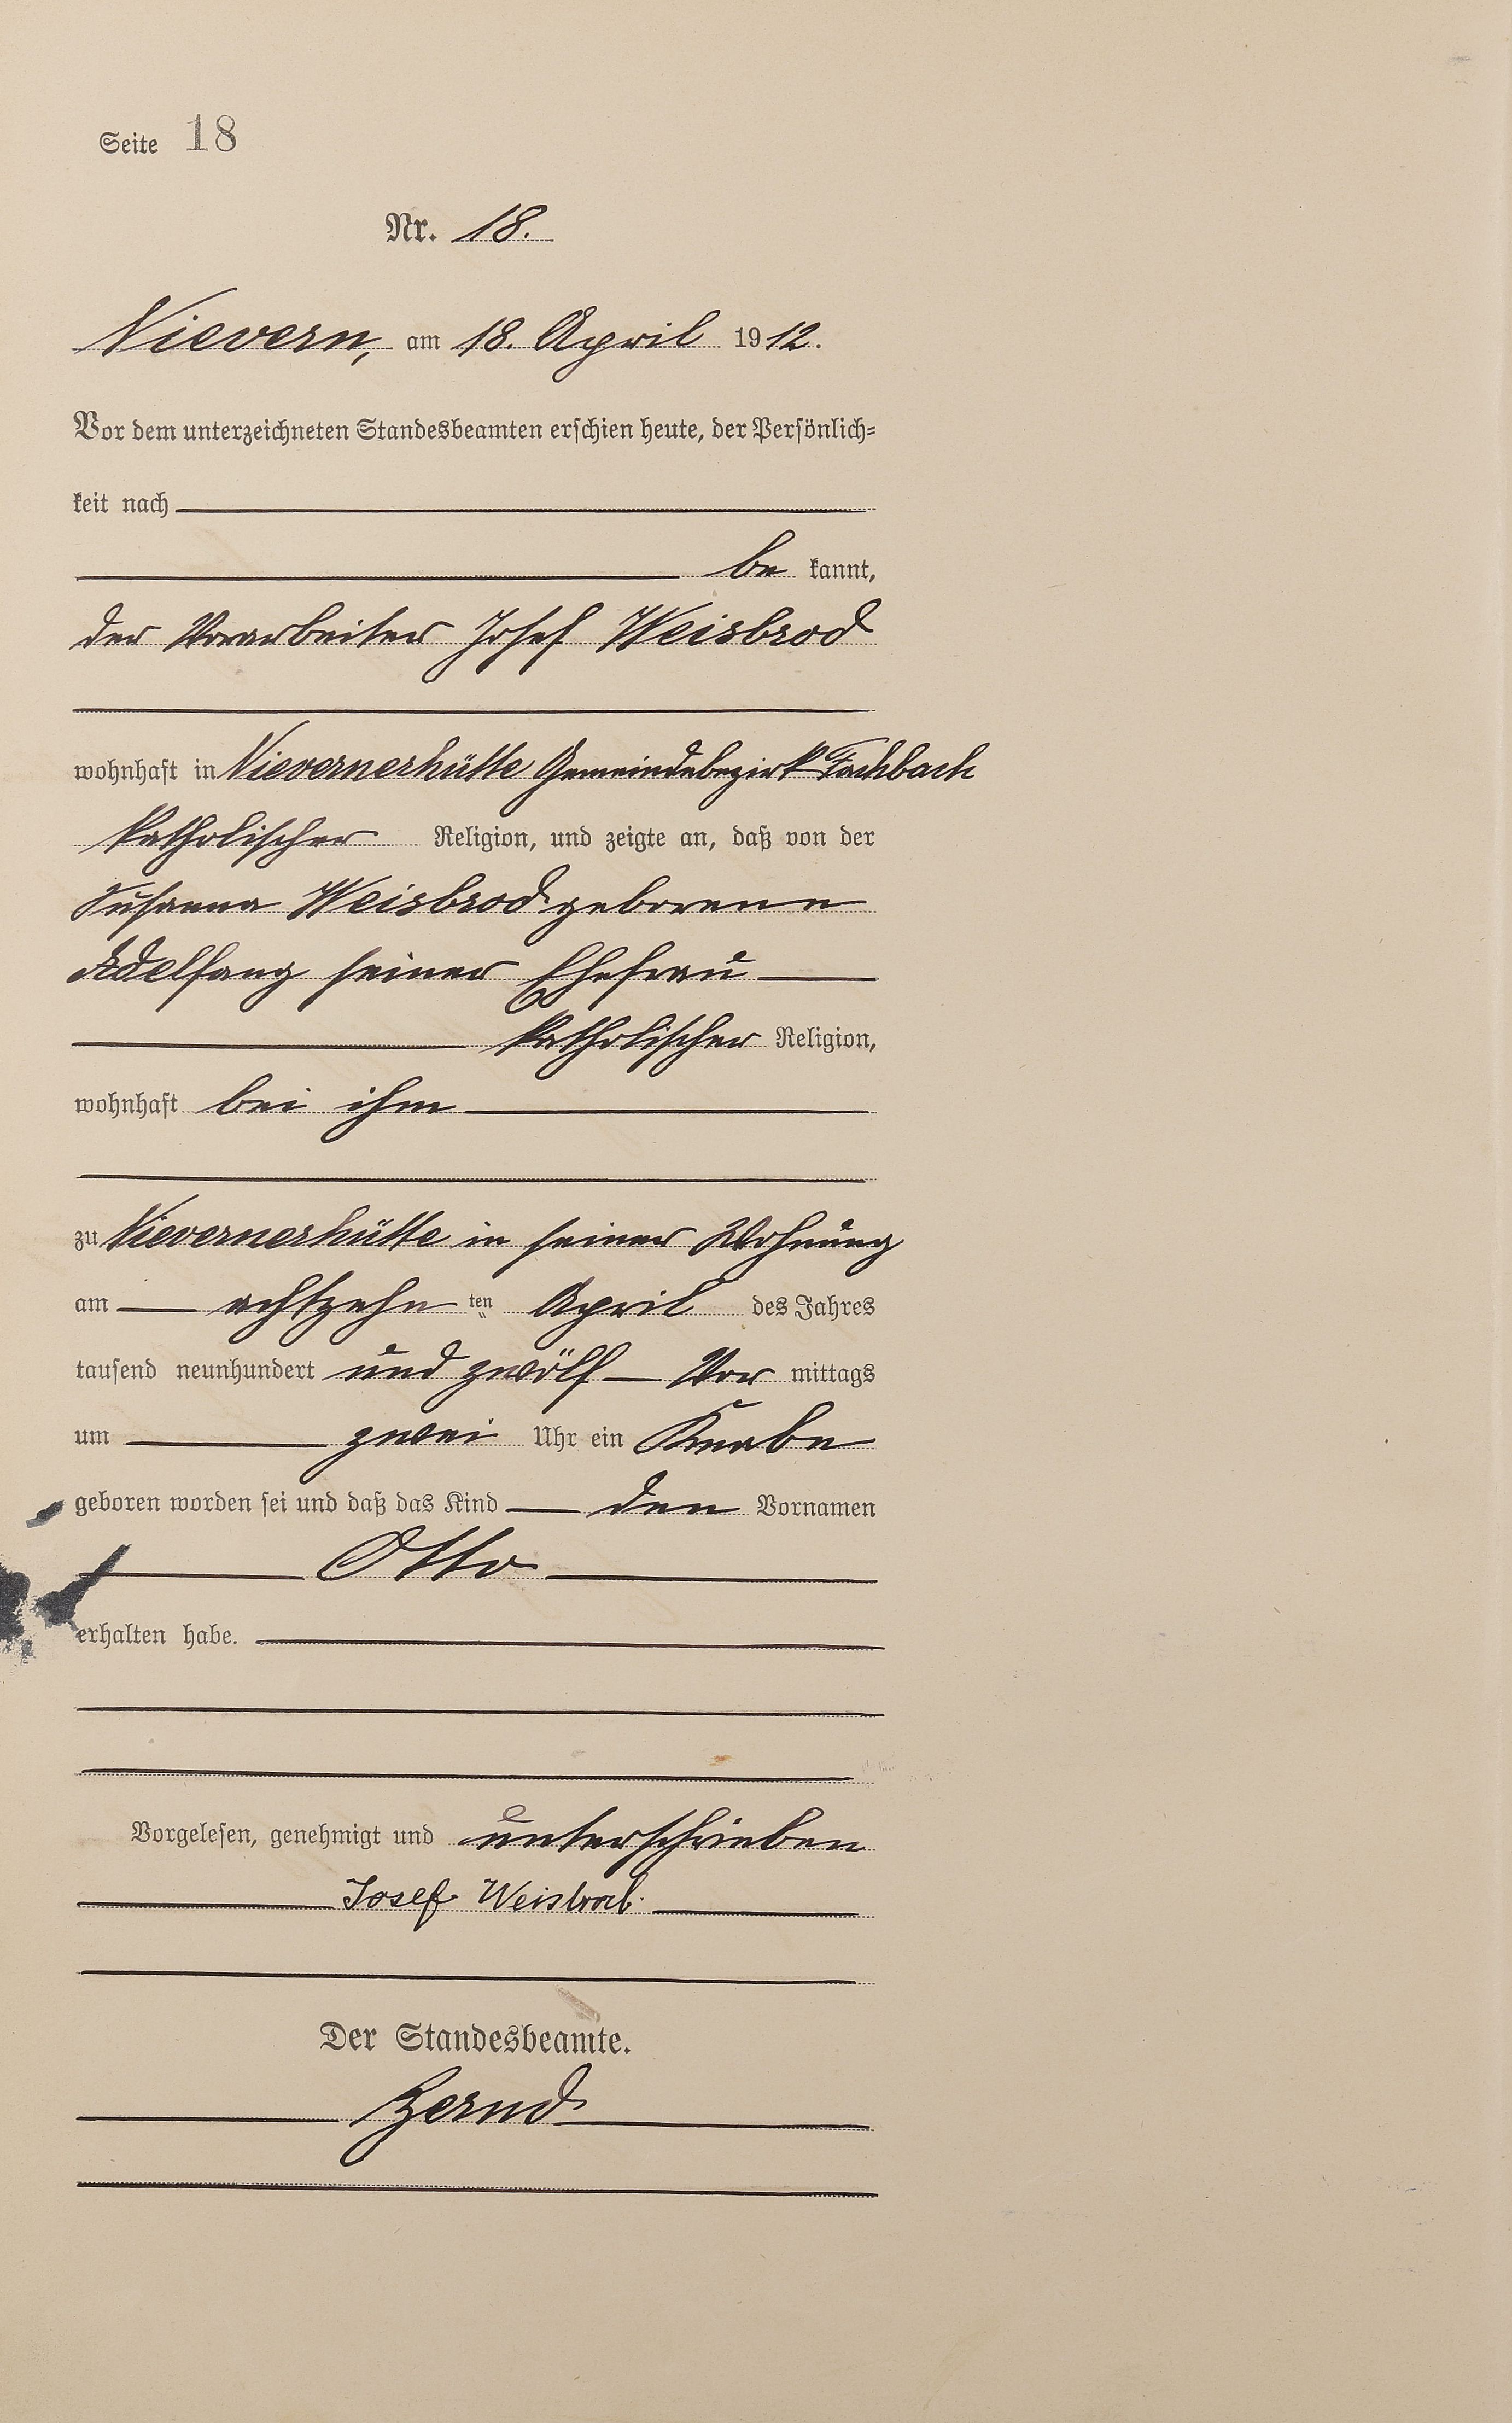 Seite 18
Nr. 18.
Nievern, am 18. April 1912.
Vor dem unterzeichneten Standesbeamten erschien heute, der Persönlich=
keit nach
be kannt,
der Vorarbeiter Josef Weisbrod
wohnhaft in Nievernerhütte Gemeindebezirk Fachbach
katholischer Religion, und zeigte an, daß von der
Susanna Weisbrod geborene
Adelfang seiner Ehefrau
katholischer Religion,
wohnhaft bei ihm
zu Nievernerhütte in seiner Wohnung
am achtzehn ten April des Jahres
tausend neunhundert und zwölf Vor mittags
um zwei Uhr ein Knabe
geboren worden sei und daß das Kind den Vornamen
Otto
erhalten habe.
Vorgelesen, genehmigt und unterschrieben
Josef Weisbrod.
Der Standesbeamte.